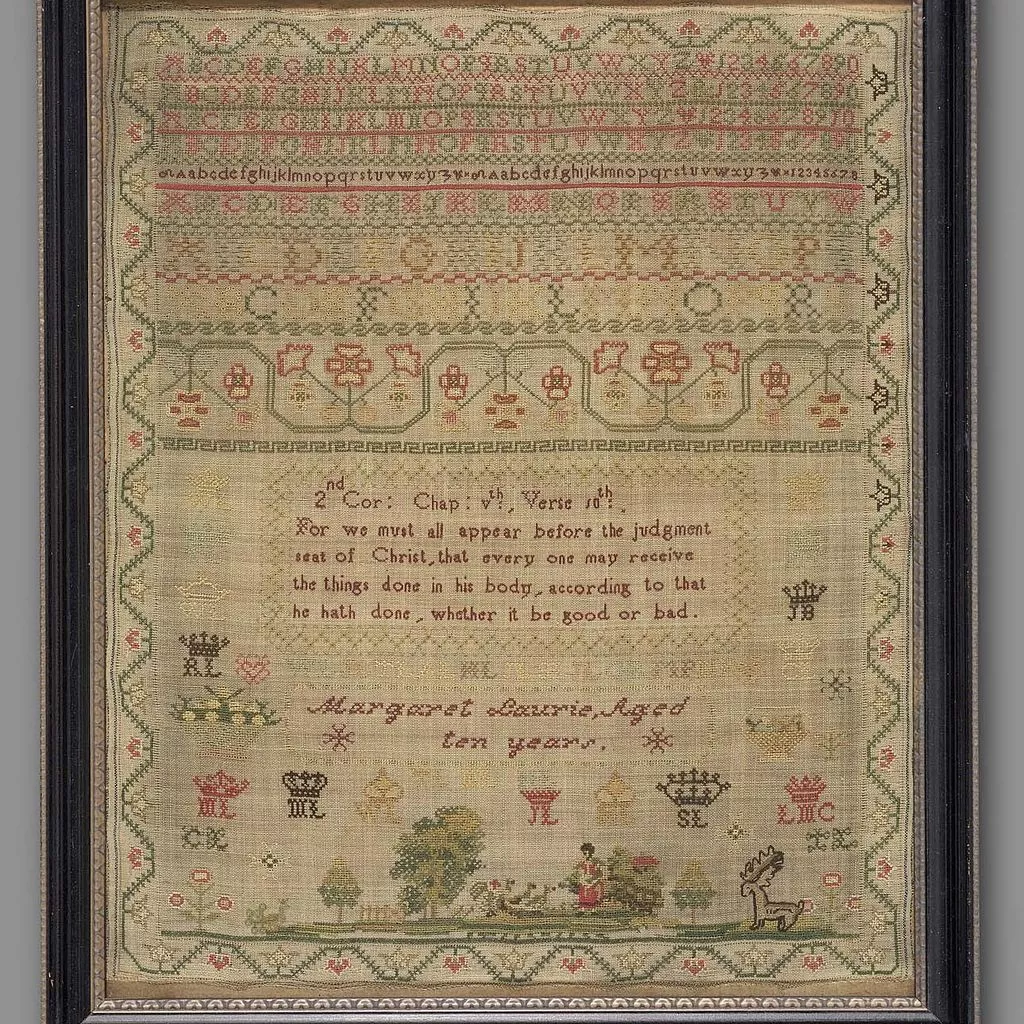 A B C D E F G H I J K L M N O P Q R S T U V W X Y Z & 1 2 3 4 5 6 7 8 9 0
B C D E F G H I J K L M N O P Q R S T U V W X Y Z & 1 2 3 4 5 6 7 8 9 0
A B C D E F G H I J K L M N O P Q R S T U V W X Y Z & 1 2 3 4 5 6 7 8 9 10
B C D E F G H I J K L M N O P Q R S T U V W X Y Z
A a b c d e f g h i j k l m n o p q r s t u v w x y z & A a b c d e f g h i j k l m n o p q r s t u v w x y z & 1 2 3 4 5 6 7 8
A B C D E F G H I J K L M N O P Q R S T U V W
A D G J M P
C F I L O R
2nd Cor: Chap: Vth, Verse 10th.
For we must all appear before the judgment
seat of Christ, that every one may receive
the things done in his body, according to that
he hath done, whether it be good or bad.
JB
RL
Margaret Laurie, Aged
ten years.
ML ML JL SL LMC
CK